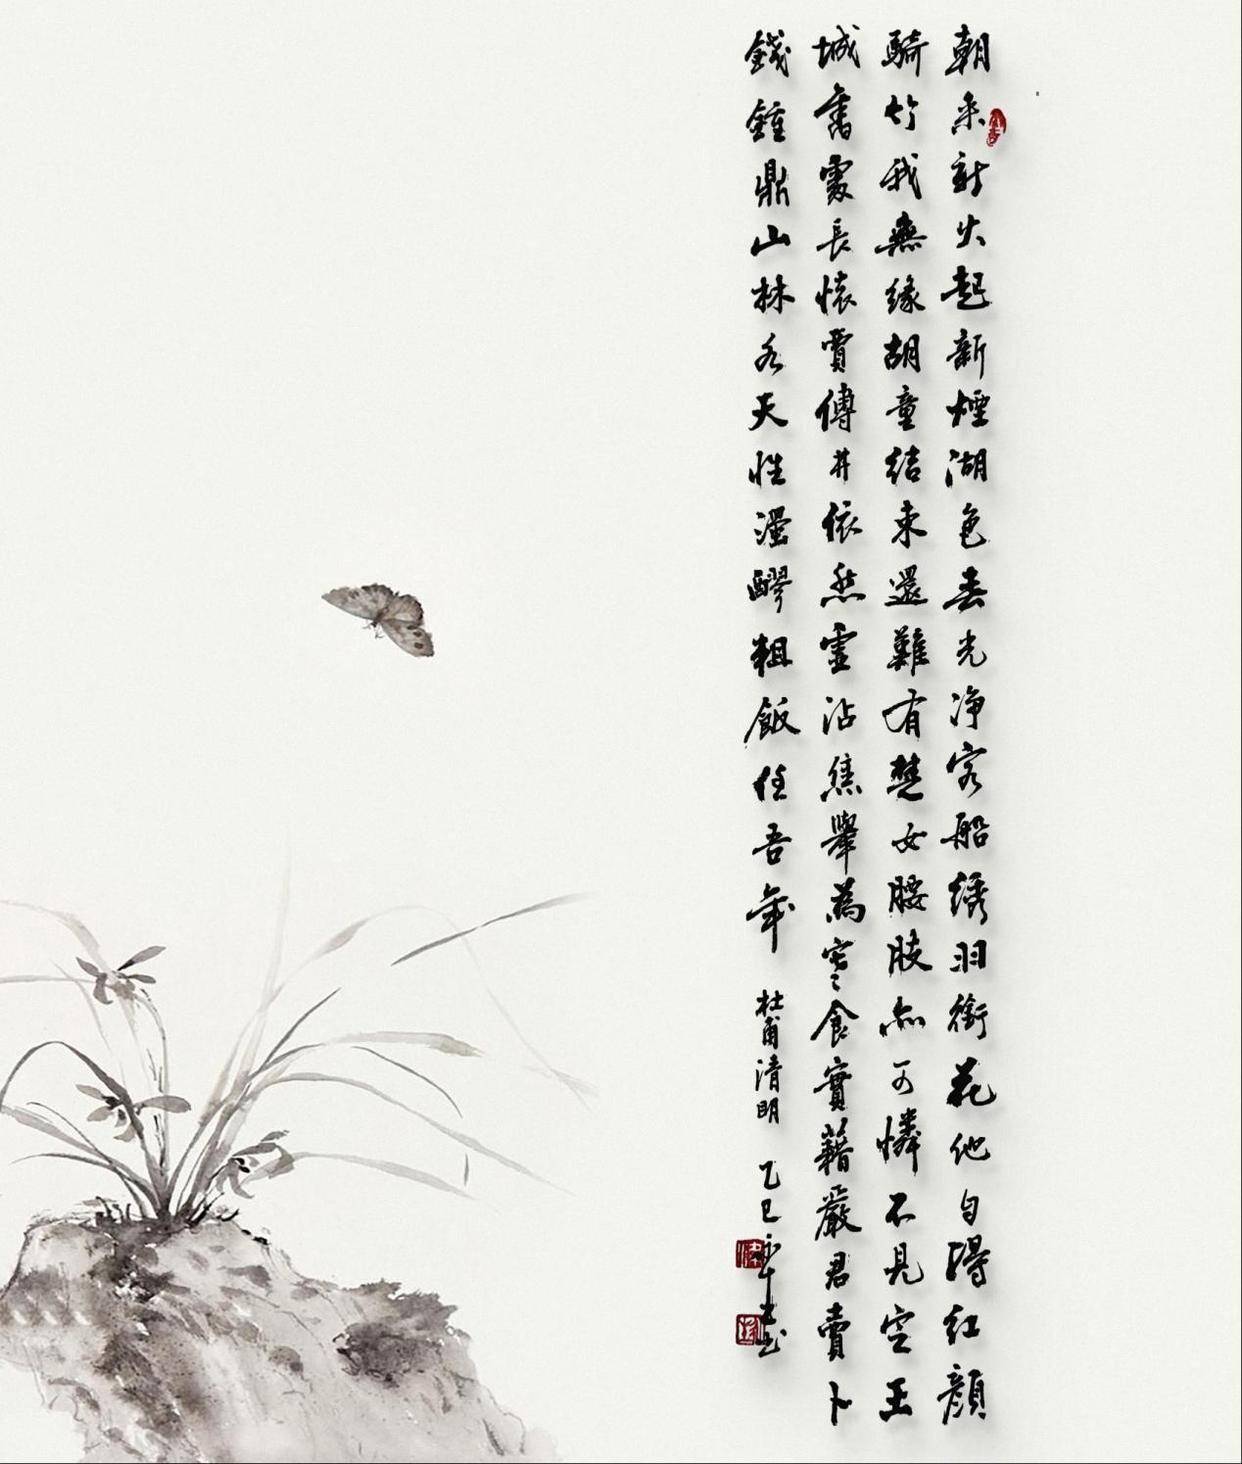 朝來新火起新煙湖色春光净客船綉羽銜花他自得紅顔
騎竹我無緣胡童結束還難有楚女腰肢亦可憐不見定王
城舊處長懷賈傅井依然虛沾焦舉為寒食實藉嚴君賣卜
錢鍾鼎山林各天性濁醪粗飯任吾年 杜甫清明 乙巳